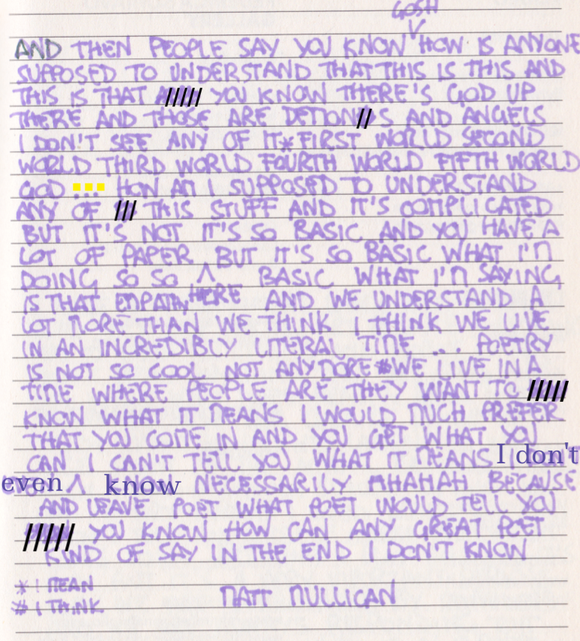 GOSH
AND THEN PEOPLE SAY YOU KNOW V HOW IS ANYONE
SUPPOSED TO UNDERSTAND THAT THIS IS THIS AND
THIS IS THAT YOU KNOW THERE'S GOD UP
THERE AND THOSE ARE DEMON S AND ANGELS
I DON'T SEE ANY OF IT * FIRST WORLD SECOND
WORLD THIRD WORLD FOURTH WORLD FIFTH WORLD
GOD ... HOW AM I SUPPOSED TO UNDERSTAND
ANY OF /// THIS STUFF AND IT'S COMPLICATED
BUT IT'S NOT IT'S SO BASIC AND YOU HAVE A
LOT OF PAPER BUT IT'S SO BASIC WHAT I'M
DOING SO SO ^ BASIC WHAT I'M SAYING
IS THAT EMPATHY HERE AND WE UNDERSTAND A
LOT MORE THAN WE THINK I THINK WE LIVE
IN AN INCREDIBLY LITERAL TIME ... POETRY
IS NOT SO COOL NOT ANYMORE # WE LIVE IN A
TIME WHERE PEOPLE ARE THEY WANT TO /////
KNOW WHAT IT MEANS I WOULD MUCH PREFER
THAT YOU COME IN AND YOU GET WHAT YOU
CAN I CAN'T TELL YOU WHAT IT MEANS I don't
even ^ know NECESSARILY AHAHAH BECAUSE
AND LEAVE POET WHAT POET WOULD TELL YOU
///// YOU KNOW HOW CAN ANY GREAT POET
KIND OF SAY IN THE END I DON'T KNOW
* I MEAN
# I THINK MATT MULLICAN